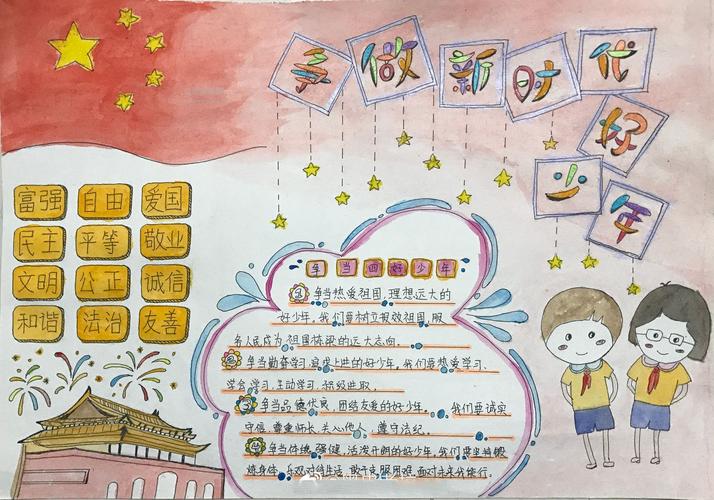 争做新时代
好少年
富强 自由 爱国
民主 平等 敬业
文明 公正 诚信
和谐 法治 友善
争当四好少年
1 争当热爱祖国,理想远大的
好少年,我们要树立报效祖国,服
务人民成为祖国栋梁的远大志向。
2 争当勤奋学习,追求上进的好少年,我们要热爱学习、
学会学习,主动学习,积极进取。
3 争当品德优良,团结友爱的好少年。我们要诚实
守信,尊重师长,关心他人,遵守法纪。
4 争当体魄强健,活泼开朗的好少年,我们要坚持锻
炼身体,乐观对待生活,敢于克服困难,面对未来